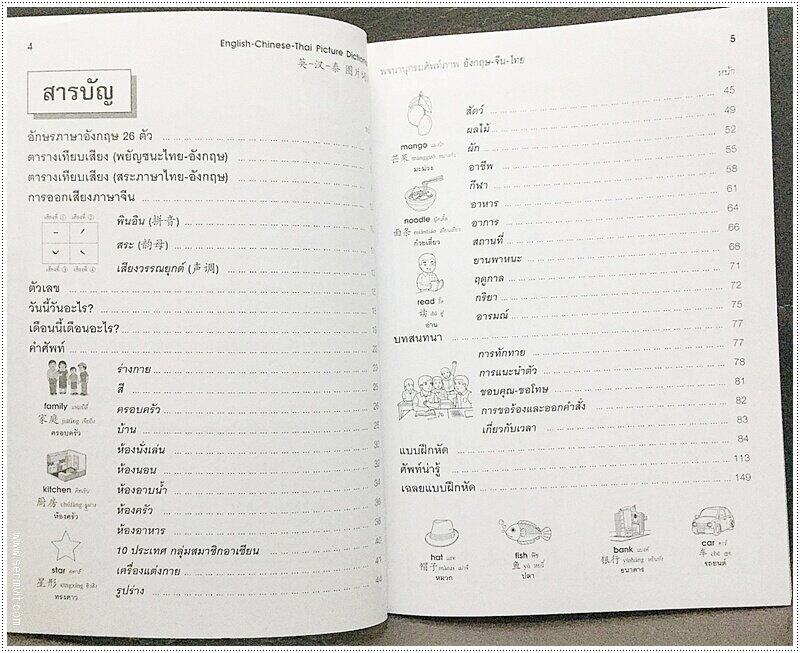 4
English-Chinese-Thai Picture Dictionary
英-汉-泰 图片词
สารบัญ
อักษรภาษาอังกฤษ 26 ตัว
ตารางเทียบเสียง (พยัญชนะไทย-อังกฤษ)
ตารางเทียบเสียง (สระภาษาไทย-อังกฤษ)
การออกเสียงภาษาจีน
เสียงที่ ① เสียงที่ ②
เสียงที่ ③ เสียงที่ ④
พินอิน (拼音)
สระ (韵母)
เสียงวรรณยุกต์ (声调)
ตัวเลข
วันนี้วันอะไร?
เดือนนี้เดือนอะไร?
คำศัพท์
ร่างกาย
สี
ครอบครัว
บ้าน
ห้องนั่งเล่น
ห้องนอน
ห้องอาบน้ำ
ห้องครัว
ห้องอาหาร
10 ประเทศ กลุ่มสมาชิกอาเซียน
เครื่องแต่งกาย
รูปร่าง 44
family แฟมมิลี่
家庭 jiātíng เจียถิง
ครอบครัว
kitchen คิทเช่น
厨房 chúfáng ฉูฝาง
ห้องครัว
star สตาร์
星形 xīngxíng ซิงสิง
ทรงดาว
5
พจนานุกรมศัพท์ภาพ อังกฤษ-จีน-ไทย
หน้า
สัตว์ 45
ผลไม้ 49
ผัก 52
อาชีพ 55
กีฬา 58
อาหาร 61
อาการ 64
สถานที่ 66
ยานพาหนะ 68
ฤดูกาล 71
กริยา 72
อารมณ์ 75
บทสนทนา 77
การทักทาย 77
การแนะนำตัว 78
ขอบคุณ-ขอโทษ 81
การขอร้องและออกคำสั่ง 82
เกี่ยวกับเวลา 83
แบบฝึกหัด 84
ศัพท์น่ารู้ 113
เฉลยแบบฝึกหัด 149
mango แมงโก
芒果 mángguǒ หมางกั่ว
มะม่วง
noodle นู้ดเดิ้ล
面条 miàntiáo เมี่ยนเถียว
ก๋วยเตี๋ยว
read รี้ด
读 dú ตู๋
อ่าน
hat แฮท
帽子 màozi เม่าจึ
หมวก
fish ฟิช
鱼 yú หยวี๋
ปลา
bank แบงค์
银行 yínháng หยินหัง
ธนาคาร
car คาร์
车 chē เชอ
รถยนต์